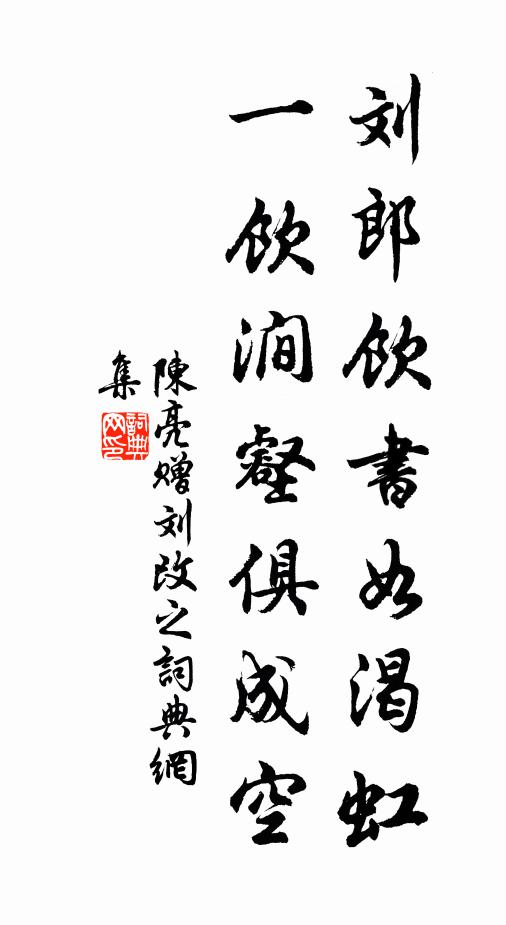 刘郎饮書如渴虹
一饮涧壑俱成空
陳亮赠刘改之詞典網
集
詞典网印